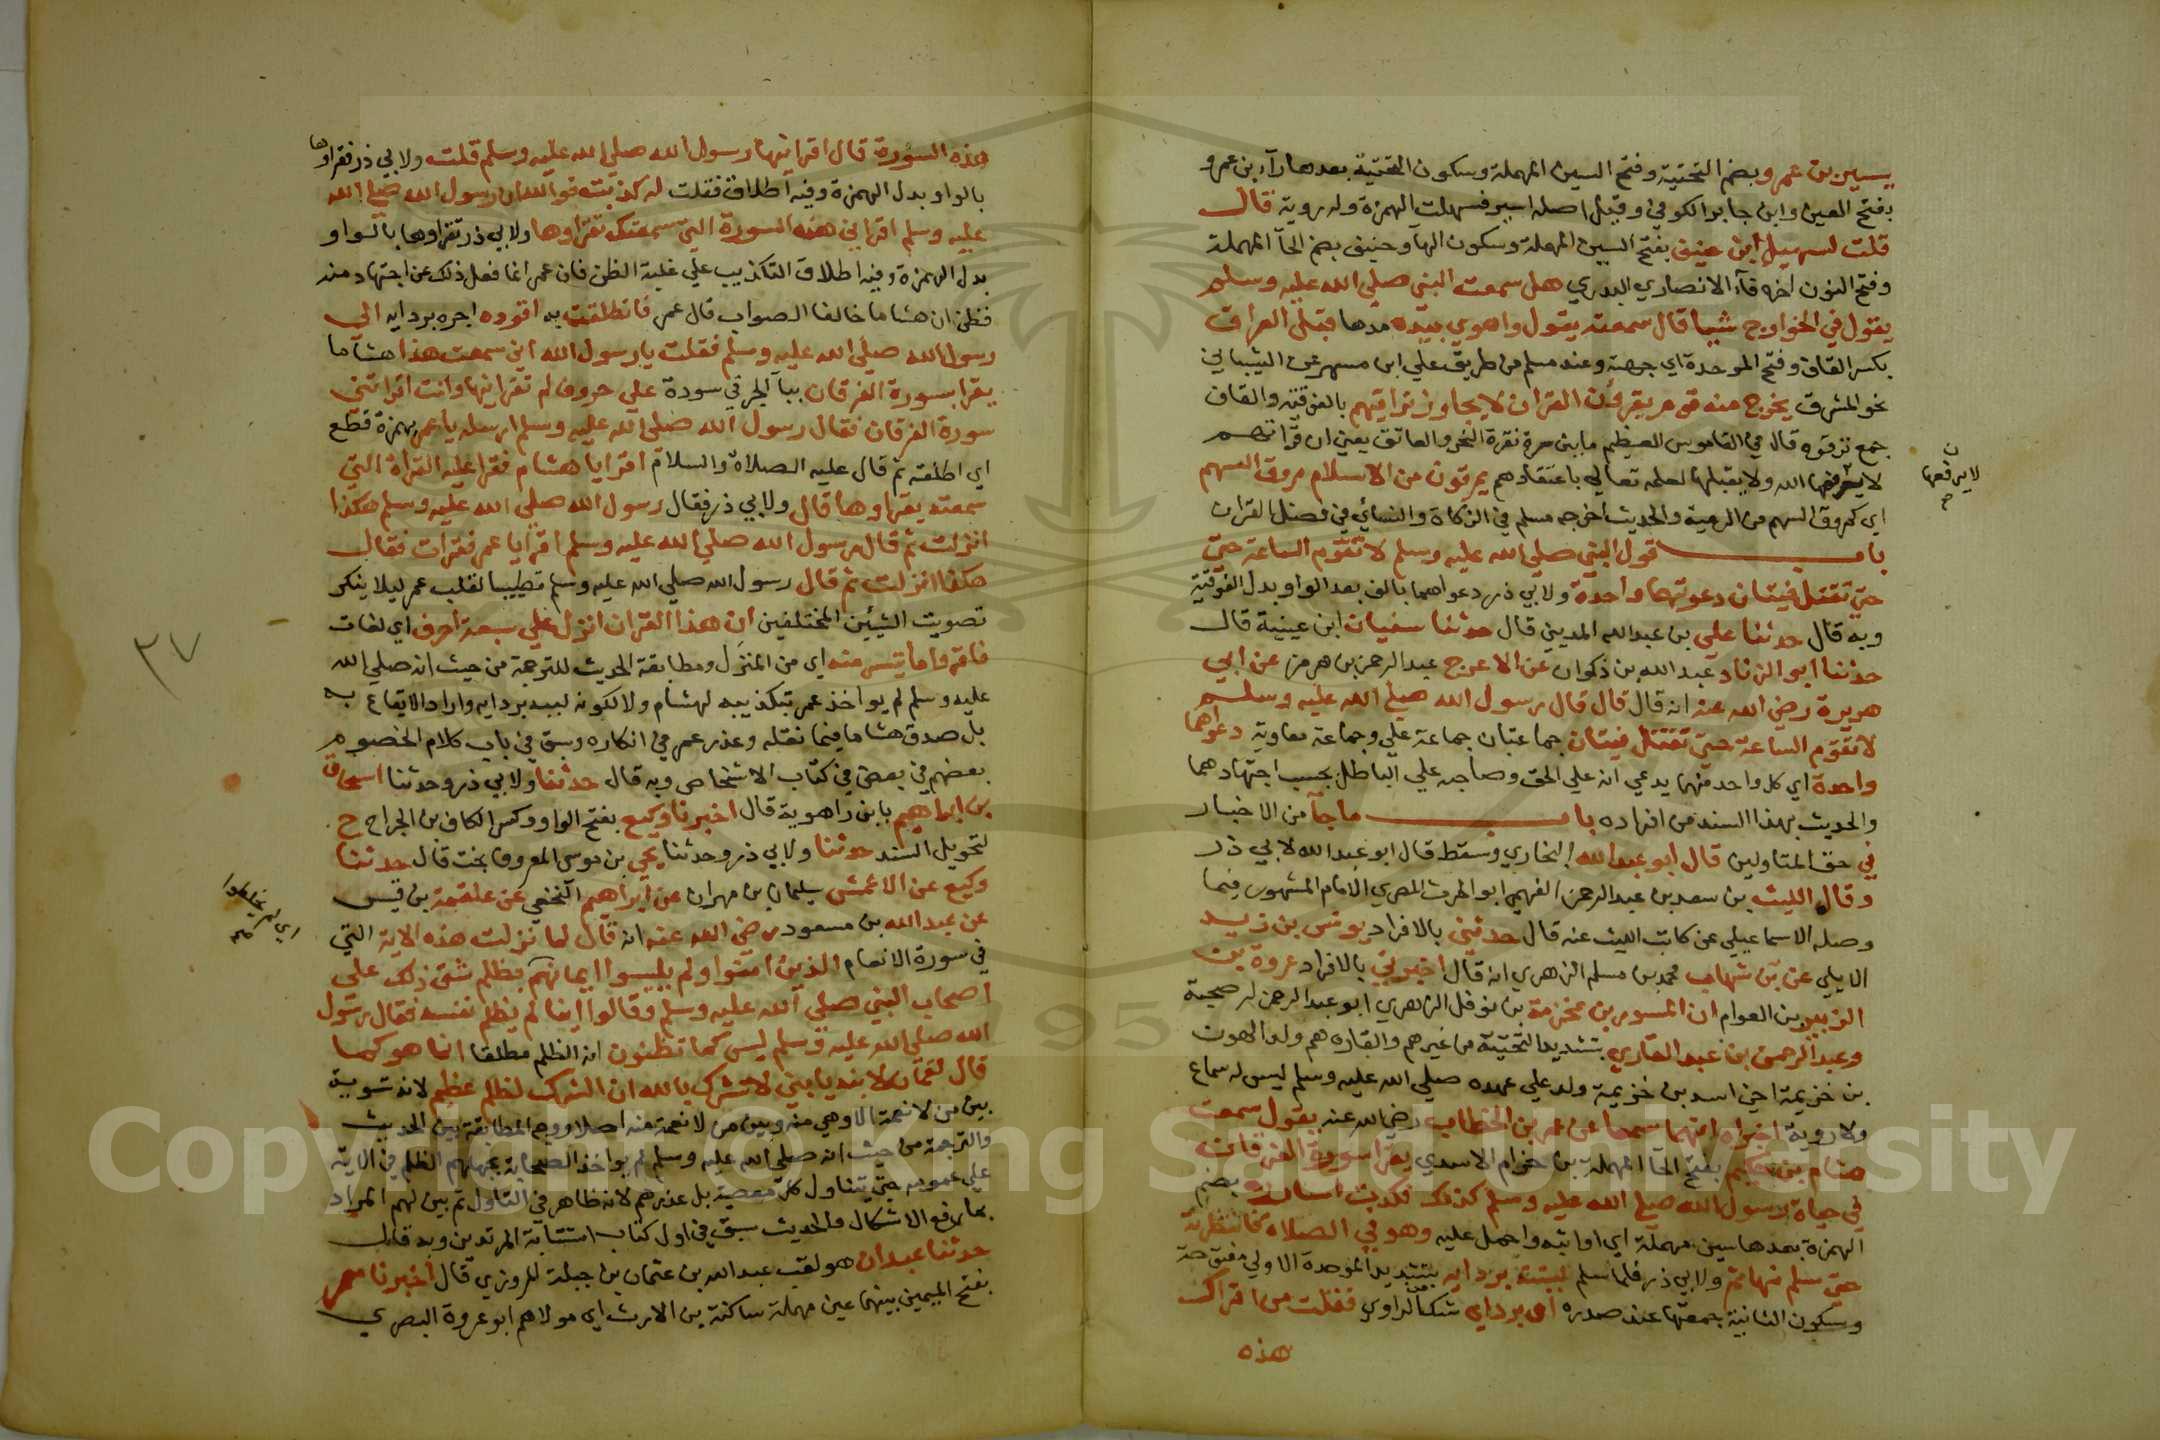 يسير بن عمرو بضم التحتية وفتح السين المهملة وسكون التحتية بعدها راء بن عمرو
بفتح العين وابن جابر الكوفي وقيل اصله اسير فسهلت الهمزة وله روية قال
قلت لسهل ابن حنيف بفتح السين المهملة وسكون الهآ وحنيف بضم الحآ المهملة
وفتح النون اخره فآء الانصاري البدري هل سمعت النبي صلي الله عليه وسلم
يقول في الخوارج شيا قال سمعته يقول واهوي بيده مدها قبل العراق
بكسر القاف وفتح الموحدة اي جهته وعند مسلم من طريق علي ابن مسهر عن الشيباني
نحو المشرق يخرج منه قوم يقرؤن القران لا يجاوز تراقيهم بالفوقية والقاف
جمع ترقوه قال في القاموس العظيم ما بين ثغرة النحر والعاتق يعني ان قراتهم
لا يرفعها الله ولا يقبلها لعلمه تعالي باعتقادهم يمرقون من الاسلام مروق السهم
لا يرفعها
اي كمروق السهم من الرمية والحديث اخرجه مسلم في الزكاة والنسائي في فضل القران
باب قول النبي صلي الله عليه وسلم لا تقوم الساعة حتي
حتي تقتتل فيتان دعوتهما واحدة ولابي ذر دعواهما بالف بعد الواو بدل الفوقية
وبه قال حدثنا علي بن عبد الله المديني قال حدثنا سفيان ابن عيينة قال
حدثنا ابو الزناد عبد الله بن ذكوان عن الاعرج عبد الرحمن بن هرمز عن ابي
هريرة رضي الله عنه انه قال قال قال رسول الله صلي الله عليه وسلم
لا تقوم الساعة حتي تقتتل فيتان جماعتان جماعة علي وجماعة معاوية دعواهما
واحدة اي كل واحد منهما يدعي انه علي الحق وصاحبه علي الباطل بحسب اجتهادهما
والحديث بهذا السند من افراده باب ما جآ من الاخبار
في حق المتاولين قال ابو عبد الله البخاري وسقط قال ابو عبد الله لابي ذر
وقال الليث بن سعد بن عبد الرحمن الفهمي ابو الحرث المصري الامام المشهور فيما
وصله الاسماعيلي عن كاتب الليث عنه قال حدثني بالافراد يونس بن زيد
الايلي عن بن شهاب محمد بن مسلم الزهري انه قال اخبرني بالافراد عروة بن
الزبير بن العوام ان المسور بن مخرمة بن نوفل الزهري ابو عبد الرحمن له صحبة
وعبد الرحمن بن عبد القاري بتشديد التحتية من غيرهم والقاره هم ولد الهون
بن خزيمة اخي اسد بن خزيمة ولد علي عهده صلي الله عليه وسلم ليس له سماع
ولا روية اخبراه انهما سمعا عمر بن الخطاب رضي الله عنه يقول سمعت
هشام بن حكيم بفتح الحآ المهملة بن حزام الاسدي يقرا سورة الفرقان
في حياة رسول الله صلي الله عليه وسلم كذلك فكدت اساوره بضم
الهمزة بعدها سين مهملة اي اواثبه واحمل عليه وهو في الصلاه فانتظرته
حتي سلم نهاتم ولابي ذر فلما سلم لببته بردايه بتشديد الموحدة الاولي مفتوحة
وسكون الثانية جمعتها عند صدره او بردايي شك الراوي فقلت من اقراك
هذه
هذه السورة قال اقرانيها رسول الله صلي الله عليه وسلم قلت ولابي ذر فقراوها
بالواو بدل الهمزة وفيه اطلاق فقلت له كذبت فوالله ان رسول الله صلي الله
عليه وسلم اقراني هذه السورة التي سمعتك تقراوها ولابي ذر تقراوها بالواو
بدل الهمزة وفيه اطلاق التكذيب علي غلبة الظن فان عمر انما فعل ذلك عن اجتهاد منه
فظن ان هشاما خالفا الصواب قال عمر فانطلقت به اقوده اجره بردايه الي
رسول الله صلي الله عليه وسلم فقلت يا رسول الله اني سمعت هذا هشاما
يقرا بسورة الفرقان ببآ الجر في سورة علي حروف لم تقرانيها وانت اقراتني
سورة الفرقان فقال رسول الله صلي الله عليه وسلم ارسله يا عمر بهمزة قطع
اي اطلقه ثم قال عليه الصلاة والسلام اقرا يا هشام فقرا عليه القراة التي
سمعته يقراوها قال ولابي ذر فقال رسول الله صلي الله عليه وسلم هكذا
انزلت ثم قال رسول الله صلي الله عليه وسلم اقرا يا عمر فقرات فقال
هكذا انزلت ثم قال رسول الله صلي الله عليه وسلم تطييبا لقلب عمر ليلا ينكر
تصويب الشيئين المختلفين ان هذا القران انزل علي سبعة احرف اي لغات
فاقروا ما تيسر منه اي من المنزل ومطابقة الحديث للترجمة من حيث انه صلي الله
عليه وسلم لم يواخذ عمر بتكذيبه لهشام ولا لكونه لببه بردايه واراد الايقاع به
بل صدق هشاما فيما نقله وعذر عمر في انكاره وسبق في باب كلام الخصوم
بعضهم في بعض في كتاب الاشخاص وبه قال حدثنا ولابي ذر وحدثنا اسحاق
بن ابراهيم بابن راهوية قال اخبرنا وكيع بفتح الواو وكسر الكاف بن الجراح ح
لتحويل السند حدثنا ولابي ذر وحدثنا يحيي بن موسي المعروف بخت قال حدثنا
وكيع عن الاعمش سليمان بن مهران عن ابراهيم النخعي عن علقمة بن قيس
عن عبد الله بن مسعود رضي الله عنه انه قال لما نزلت هذه الاية التي
في سورة الانعام الذين امنوا ولم يلبسوا ايمانهم بظلم شق ذلك علي
اي لم يخلطوا
اصحاب النبي صلي الله عليه وسلم وقالوا اينا لم يظلم نفسه فقال رسول
الله صلي الله عليه وسلم ليس كما تظنون انه الظلم مطلقا انما هو كما
قال لقمان لابنه يا بني لا تشرك بالله ان الشرك لظلم عظيم لانه تسوية
بين من لا نعمة الا وهي منه وبين من لا نعمة منه اصلا ووجه المطابقة بين الحديث
والترجمة من حيث انه صلي الله عليه وسلم لم يواخذ الصحابة بحملهم الظلم في الاية
علي عمومه حتي يتناول كل معصية بل عذرهم لانه ظاهر في التاول ثم بين لهم المراد
بما رفع الاشكال والحديث سبق في اول كتاب استتابة المرتدين وبه قال
حدثنا عبدان هو لقب عبد الله بن عثمان بن جبلة المروزي قال اخبرنا معمر
بفتح الميمين بينهما عين مهملة ساكنة بن الارث اي مولاهم ابو عروة البصري
٣٧
Copyright © King Saud University
1957